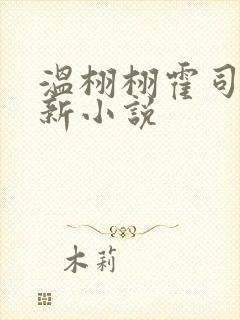 温栩栩霍司
新小说
木莉